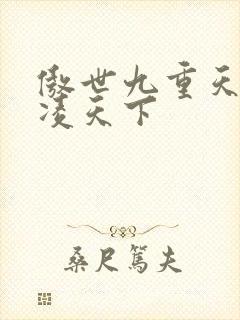 傲世九重天
凌天下
桑尺篤夫